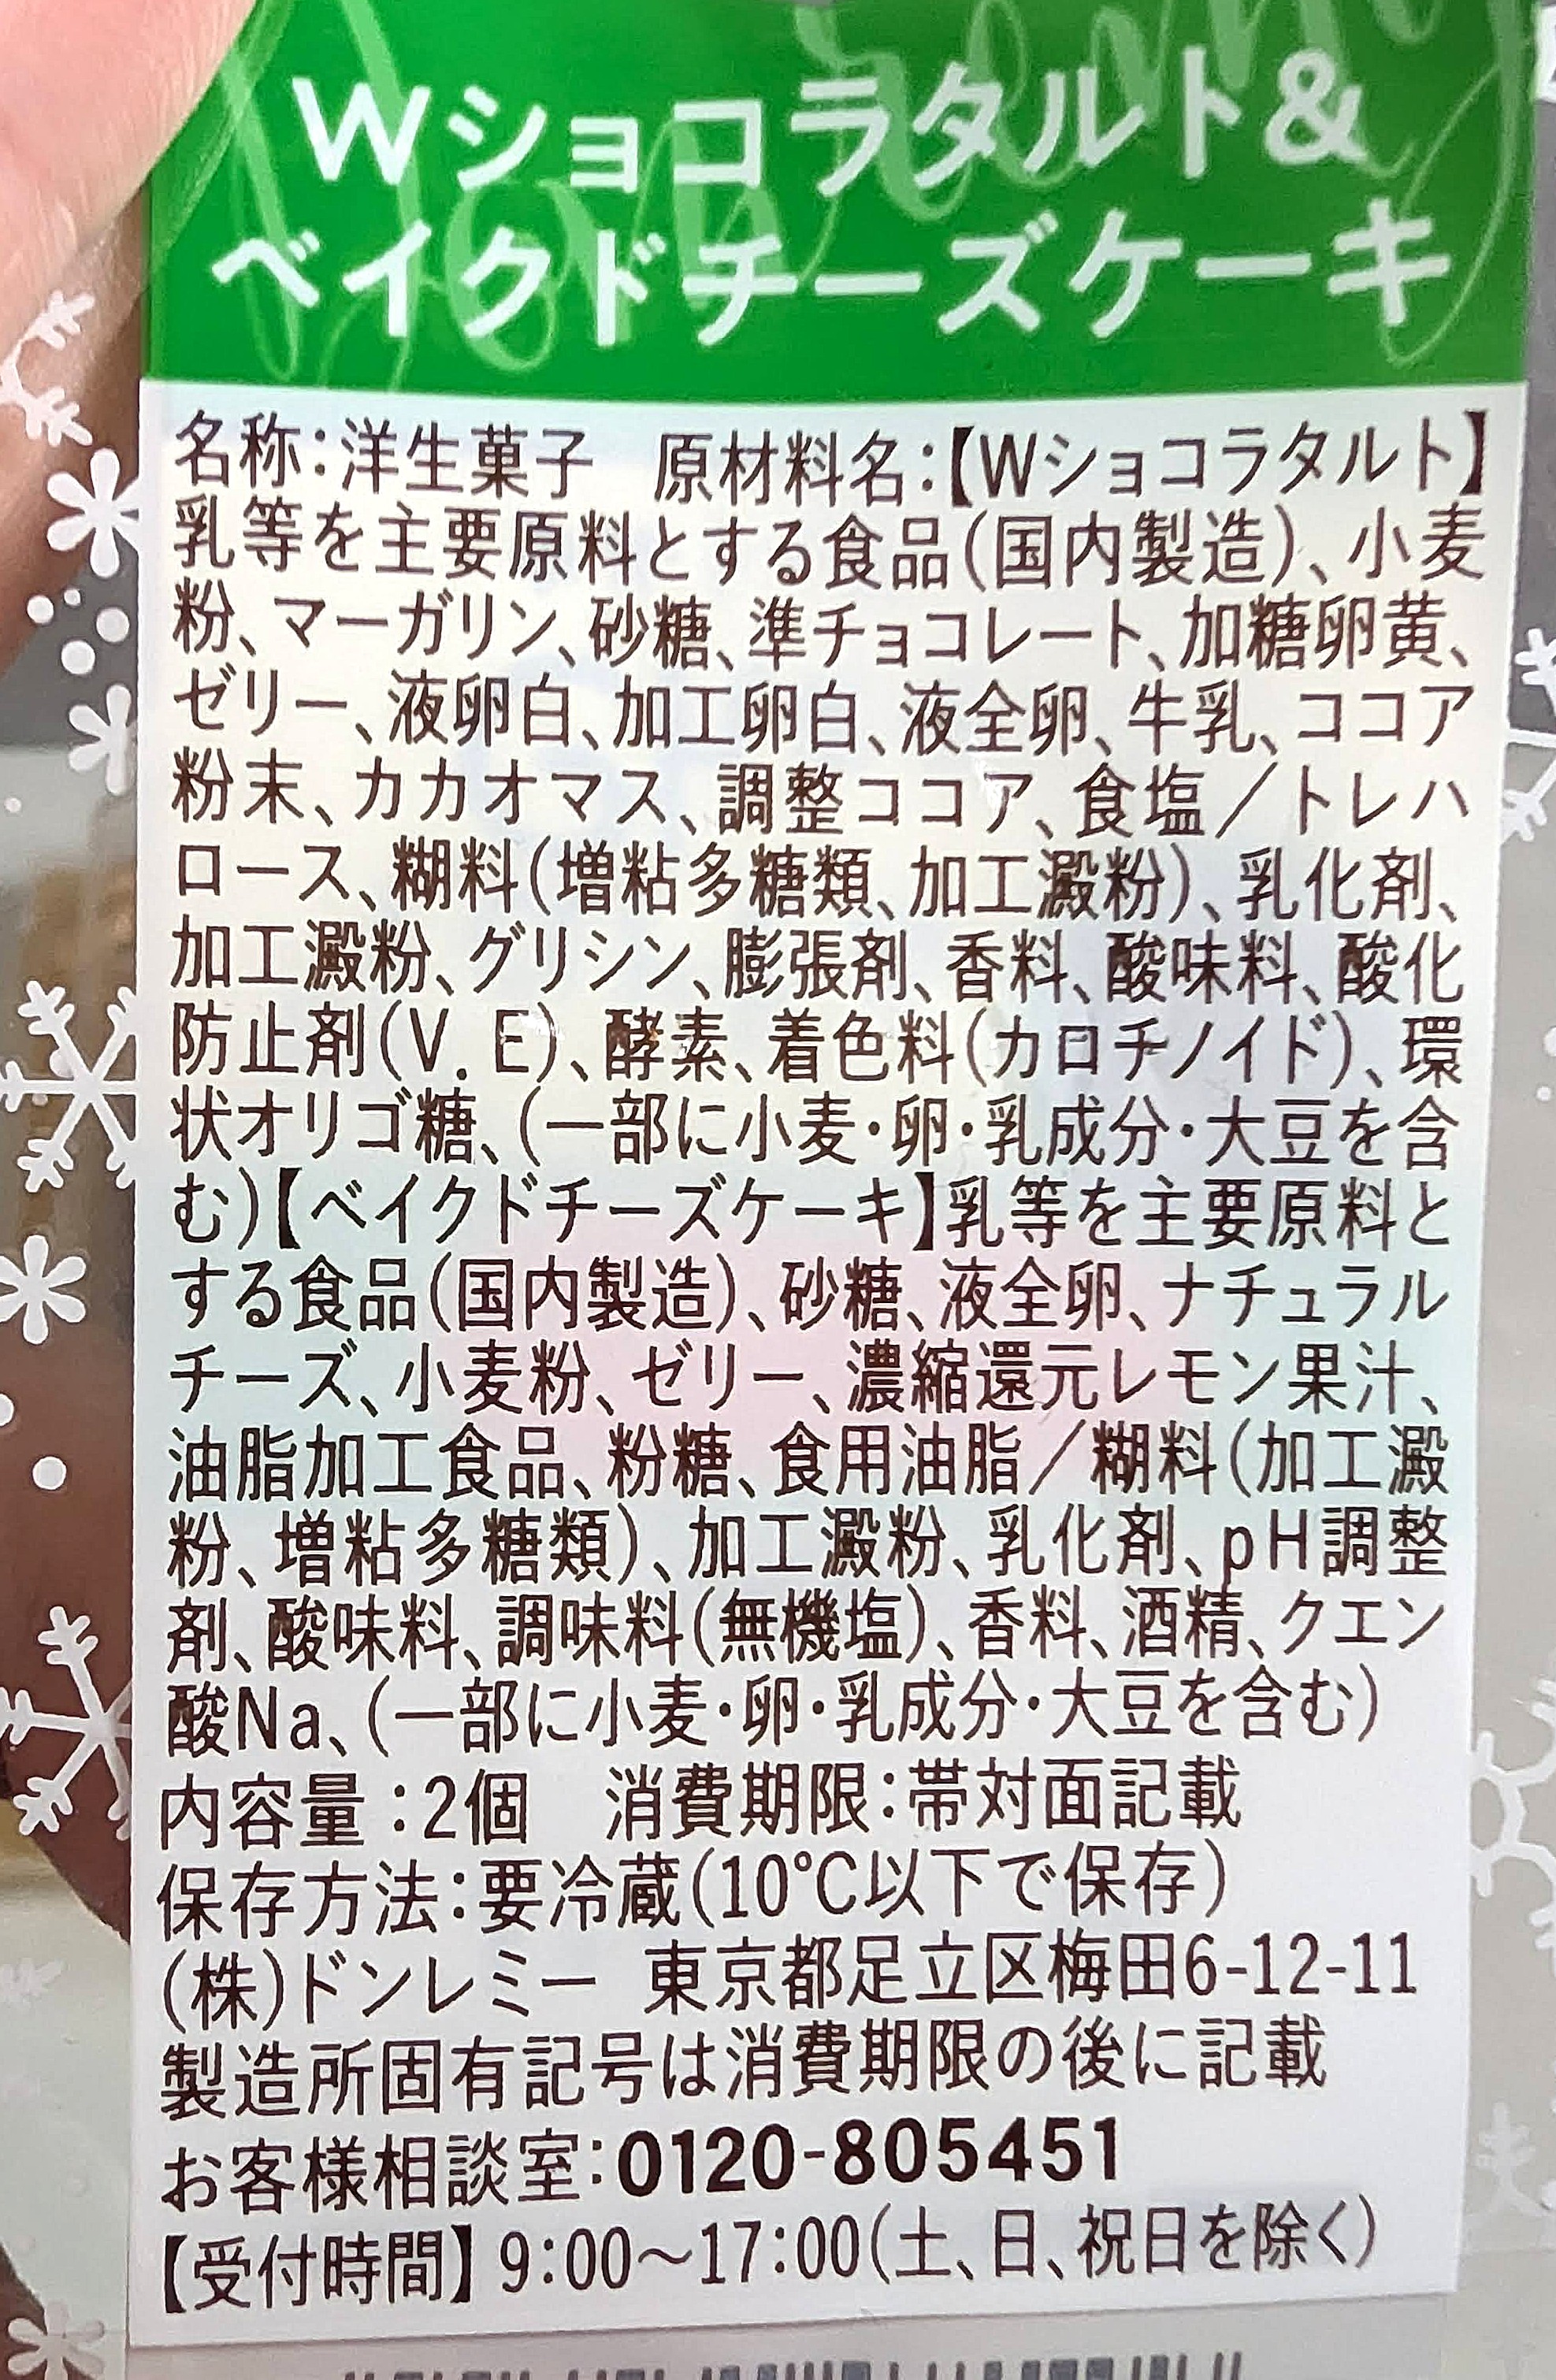 Wショコラタルト&
ベイクドチーズケーキ
名称:洋生菓子 原材料名:【Wショコラタルト】
乳等を主要原料とする食品(国内製造)、小麦
粉、マーガリン、砂糖、準チョコレート、加糖卵黄、
ゼリー、液卵白、加工卵白、液全卵、牛乳、ココア
粉末、カカオマス、調整ココア、食塩/トレハ
ロース、糊料(増粘多糖類、加工澱粉)、乳化剤、
加工澱粉、グリシン、膨張剤、香料、酸味料、酸化
防止剤(V.E)、酵素、着色料(カロチノイド)、環
状オリゴ糖、(一部に小麦・卵・乳成分・大豆を含
む)【ベイクドチーズケーキ】乳等を主要原料と
する食品(国内製造)、砂糖、液全卵、ナチュラル
チーズ、小麦粉、ゼリー、濃縮還元レモン果汁、
油脂加工食品、粉糖、食用油脂/糊料(加工澱
粉、増粘多糖類)、加工澱粉、乳化剤、pH調整
剤、酸味料、調味料(無機塩)、香料、酒精、クエン
酸Na、(一部に小麦・卵・乳成分・大豆を含む)
内容量:2個 消費期限:帯対面記載
保存方法:要冷蔵(10℃以下で保存)
(株)ドンレミー 東京都足立区梅田6-12-11
製造所固有記号は消費期限の後に記載
お客様相談室:0120-805451
【受付時間】9:00~17:00(土、日、祝日を除く)